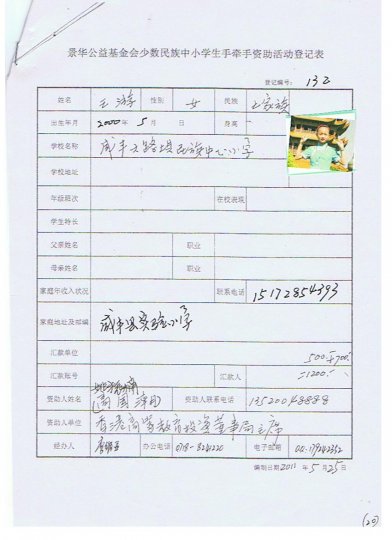 景华公益基金会少数民族中小学生手牵手资助活动登记表
登记编号: 132
姓名 王 性别 女 民族 土家族
出生年月 2000年 5 月 日 身高
学校名称 咸丰大路坝民族中心小学
学校地址
年级班次 在校表现
学生特长
父亲姓名 职业
母亲姓名 职业
家庭年收入状况 联系电话 15172854393
家庭地址及邮编 咸丰县实验小学
汇款单位 500+700
汇款账号 汇款人 =1200
资助人姓名 资助人联系电话 13520048888
资助人单位 香港高等教育投资董事局主席
经办人 办公电话 电子邮箱
编制日期2011 年 5 月 25 日
(20)